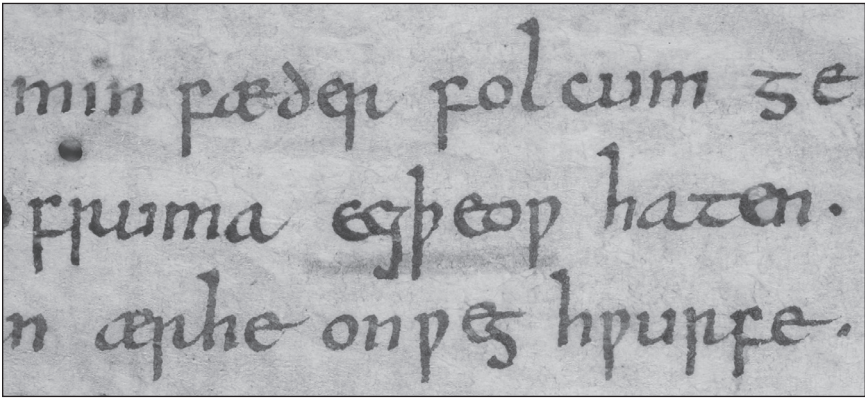 min fæder folcum ge
fruma ecgþeoƿ haten.
n ær he onƿeg hƿurfe.